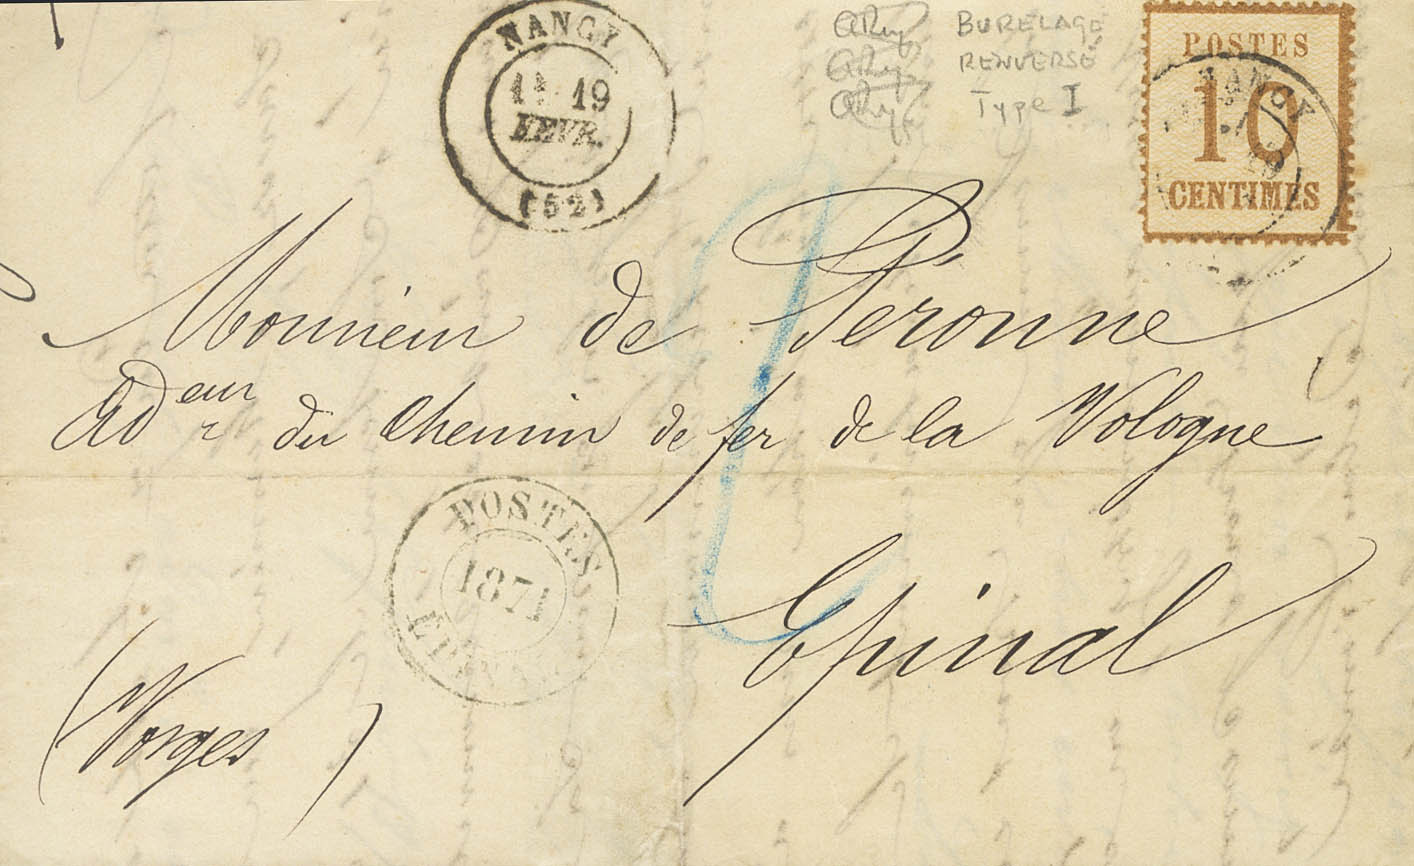 NANCY
19
FEVR.
(52)
BURELAGE
RENVERSÉ
Type I
POSTES
10
CENTIMES
NANCY
19
Monsieur de Péronne
Adeur du chemin de fer de la Vologne
POSTES
1871
EPINAL
Epinal
(Vosges)
2